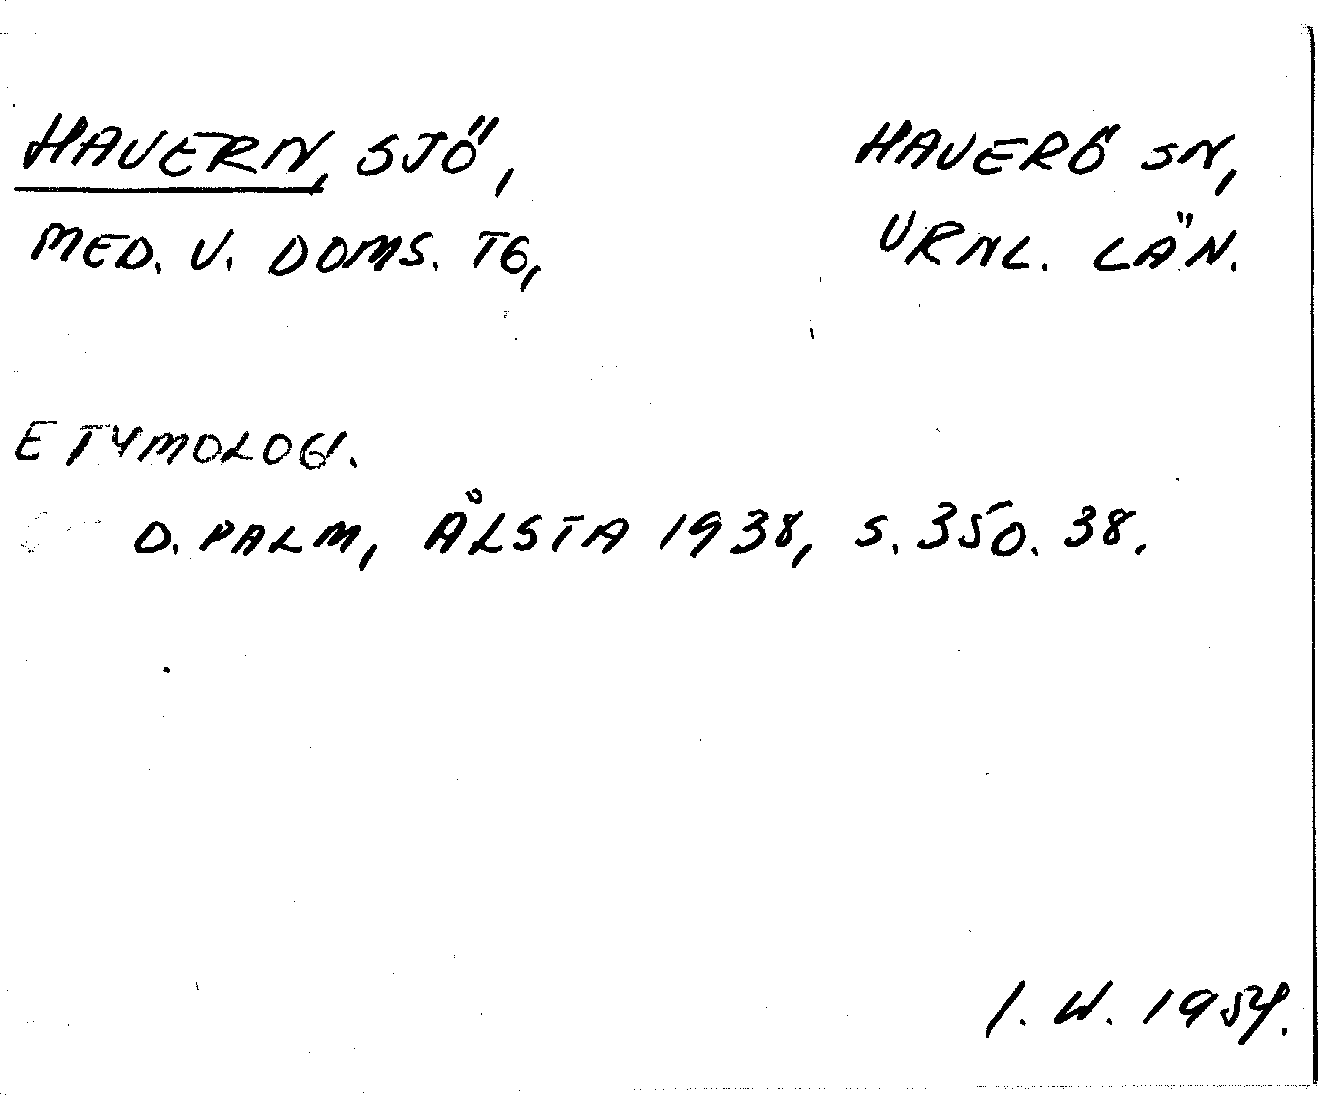 HAVERN, SJÖ, HAVERÖ SN,
MED. V. DOMS. TG, VRNL. LÄN.
ETYMOLOGI.
D. PALM, ÅLSTA 1938, S. 350. 38.
I. W. 1954.